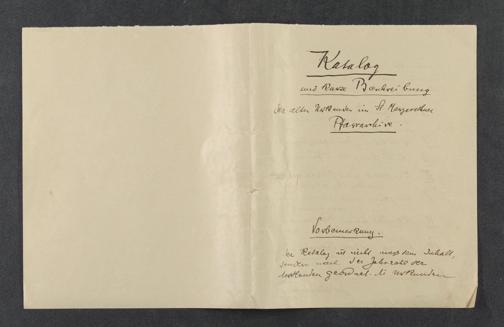 Katalog
und kurze Beschreibung
der alten Urkunden im St Margarethner
Pfarrarchive.
Vorbemerkung.
Der Katalog ist nicht nach dem Inhalt,
sondern nach der Jahrzahl der
Urkunden geordnet. Die Urkunden